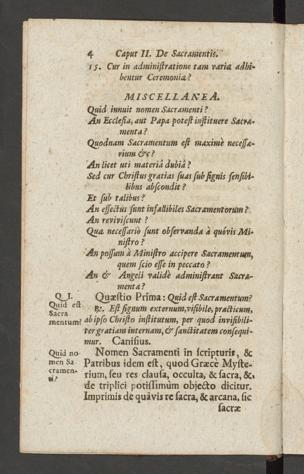 4 Caput II. De Sacramentis.
15. Cur in administratione tam varia adhi-
bentur Ceremonia?
MISCELLANEA.
Quid innuit nomen Sacramenti?
An Ecclesia, aut Papa potest instituere Sacra-
menta?
Quodnam Sacramentum est maximè necessa-
rium &c?
An licet uti materiâ dubiâ?
Sed cur Christus gratias suas sub signis sensibi-
libus abscondit?
Et sub talibus?
An effectus sunt infallibiles Sacramentorum?
An reviviscunt?
Qua necessariò sunt observanda à quôvis Mi-
nistro?
An possum à Ministro accipere Sacramentum,
quem scio esse in peccato?
An & Angeli validè administrant Sacra-
menta?
Q. I.
Quid est
Sacra
mentum?
Quæstio Prima: Quid est Sacramentum?
℞. Est signum externum, visibile, practicum,
ab ipso Christo institutum, per quod invisibili-
ter gratiam internam, & sanctitatem consequi-
mur. Canisius.
Quid no-
men Sa-
cramen-
ti?
Nomen Sacramenti in scripturis, &
Patribus idem est, quod Græcè Myste-
rium, seu res clausa, occulta, & sacra, &
de triplici potissimùm objecto dicitur.
Imprimis de quâvis re sacra, & arcana, sic
sacræ